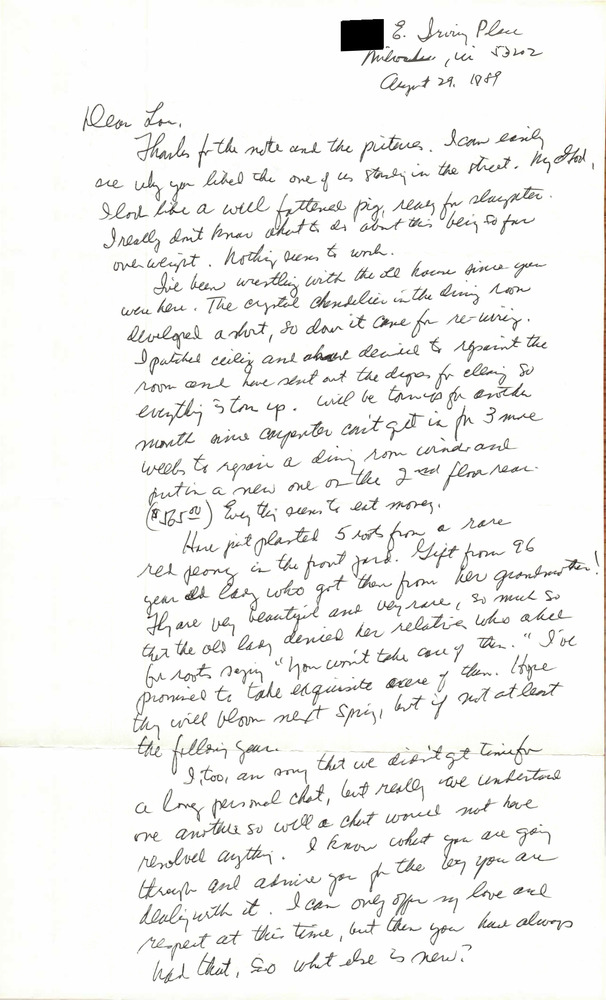 E. Irving Place
Milwaukee, Wi 53202
August 29, 1989
Dear Lou,
Thanks for the note and the pictures. I can easily
see why you liked the one of us standing in the street. My God,
I look like a well fattened pig, ready for slaughter.
I really don't know what to do about this being so far
overweight. Nothing seems to work.
I've been wrestling with the old house since you
were here. The crystal chandelier in the dining room
developed a short, so down it came for re-wiring.
I patched ceiling and decided to repaint the
room and have sent out the drapes for cleaning so
everything is torn up. Will be torn up for another
month since carpenter can't get in for 3 more
weeks to repair a dining room window and
put in a new one on the 2nd floor rear.
($565.00) Everything seems to eat money.
Have just planted 5 roots from a rare
red peony in the front yard. Gift from 96
year old lady who got them from her grandmother!
They are very beautiful and very rare, so much so
that the old lady denied her relatives who asked
for roots saying "You won't take care of them." I've
promised to take exquisite care of them. Hope
they will bloom next Spring, but if not at least
the following year.
I, too, am sorry that we didn't get time for
a long personal chat, but really we understand
one another so well a chat would not have
resolved anything. I know what you are going
through and admire you for the way you are
dealing with it. I can only offer my love and
respect at this time, but then you have always
had that, so what else is new?